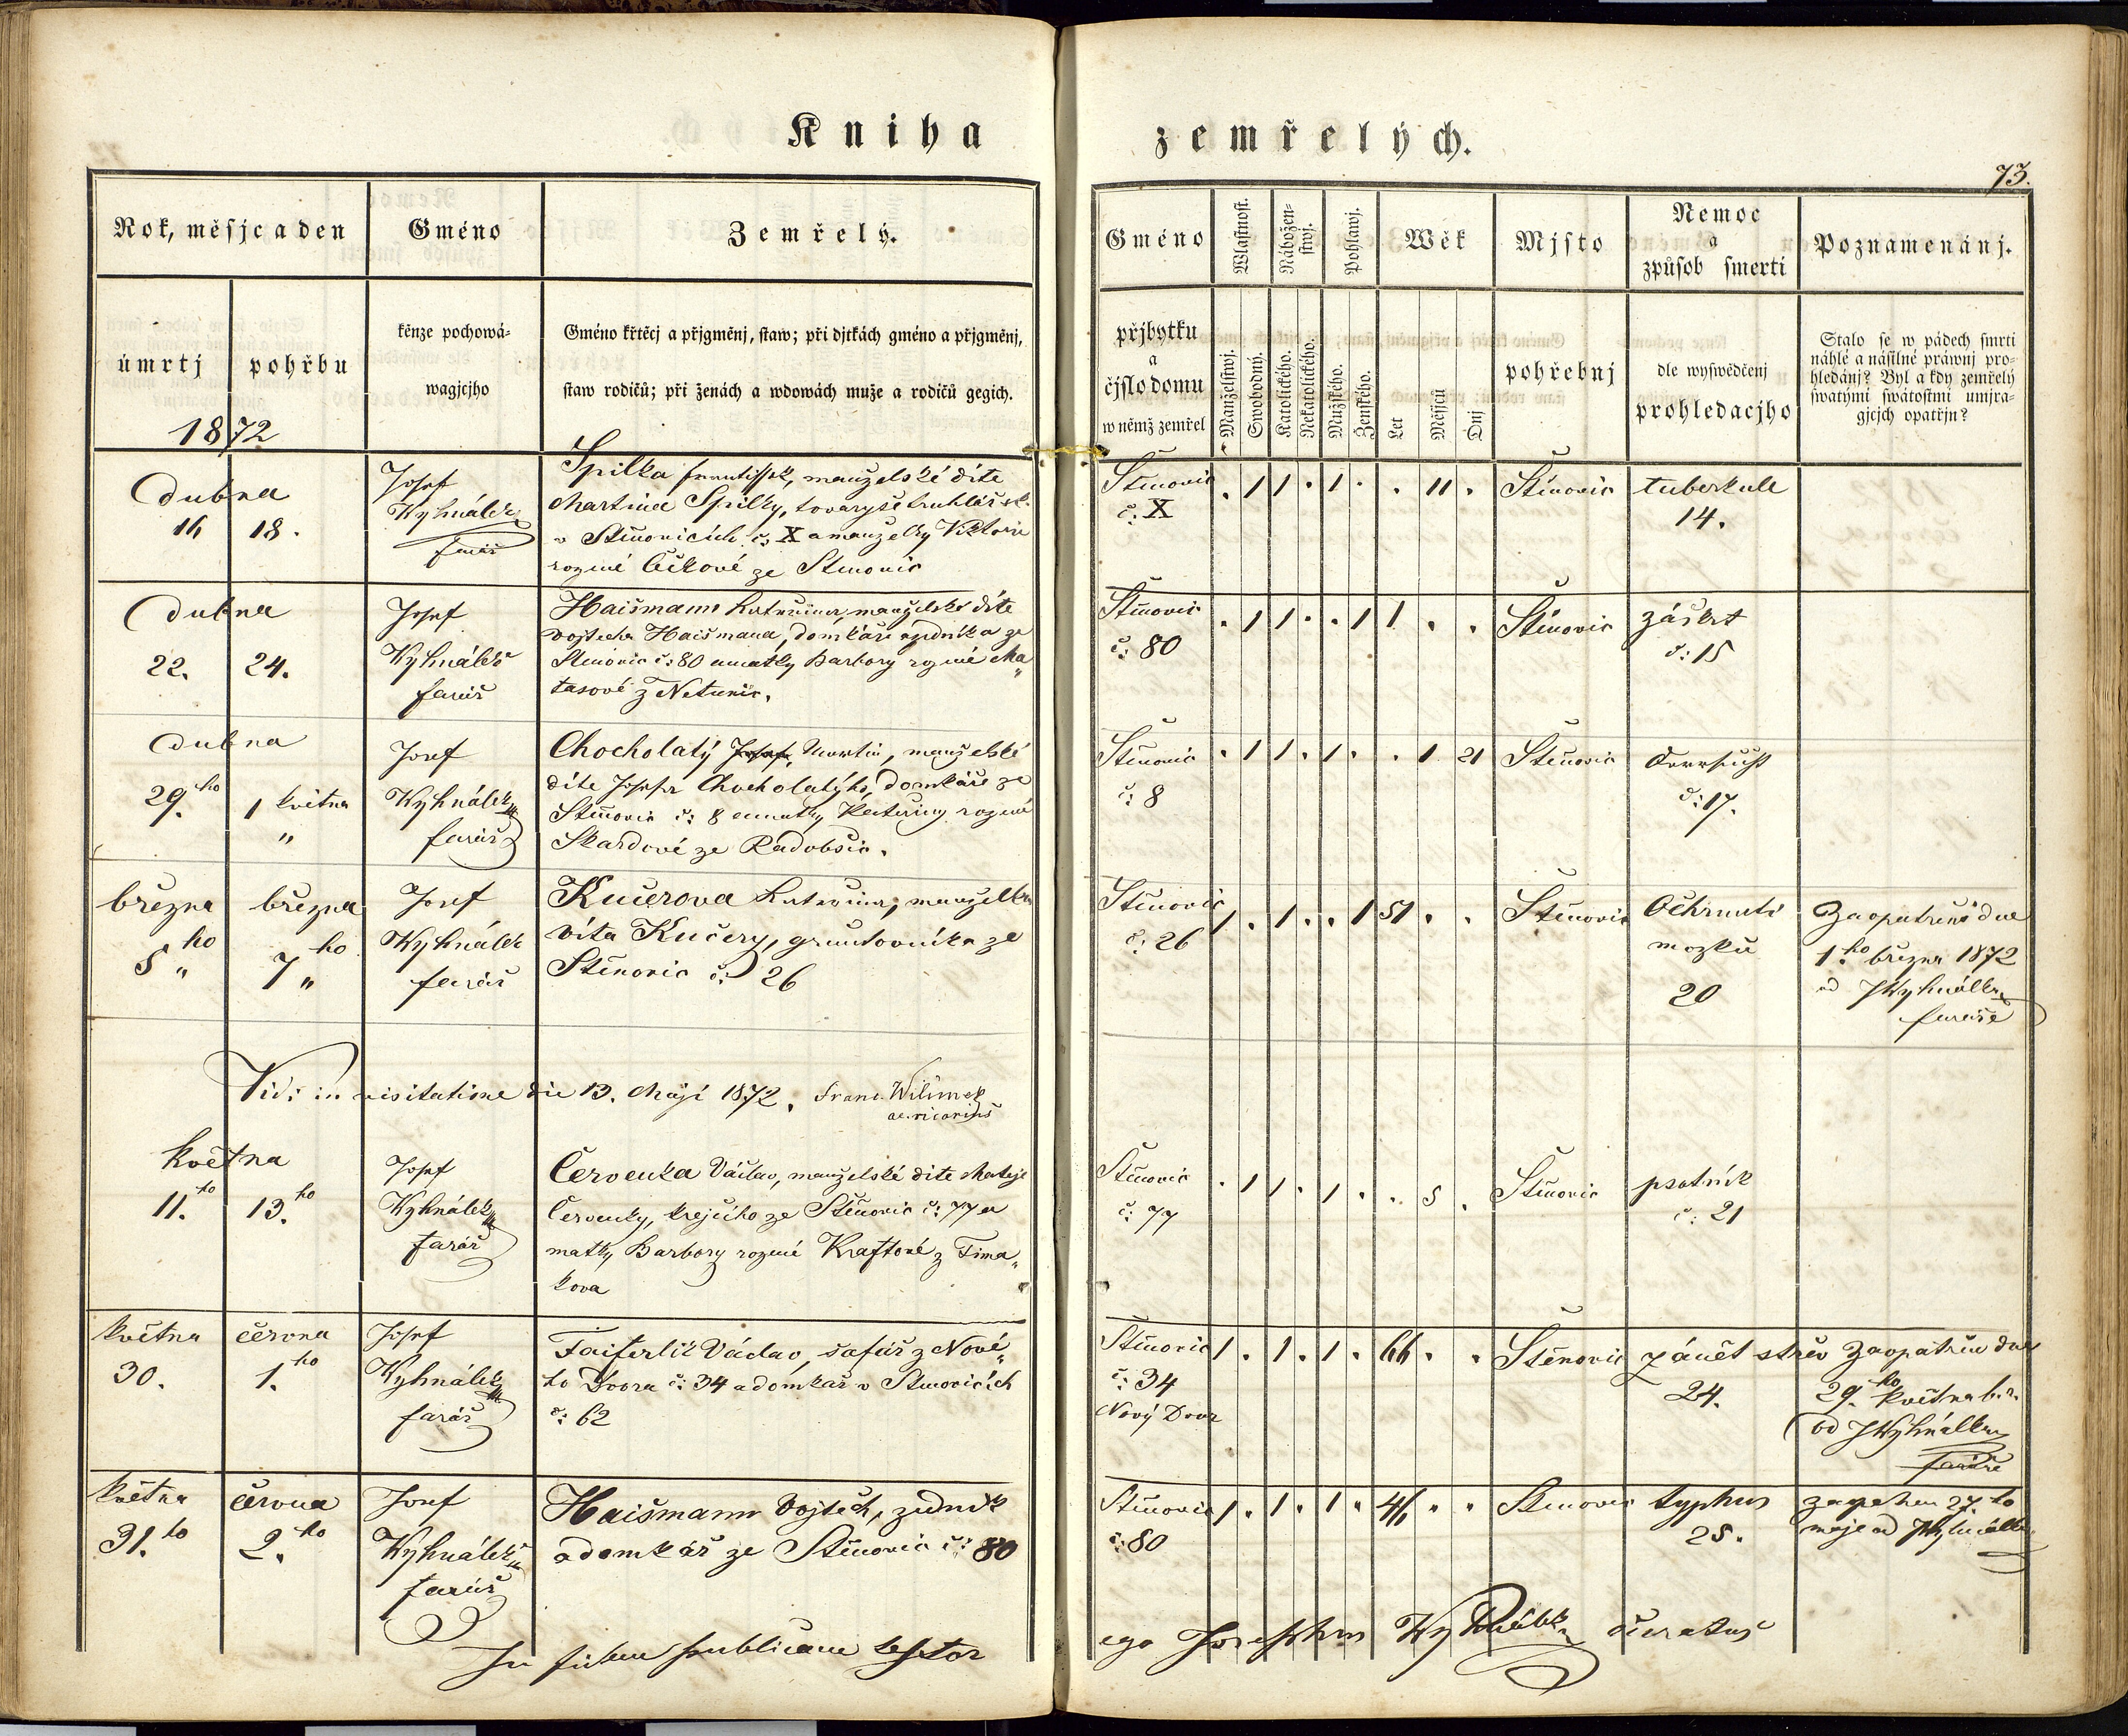 Kniha zemřelých.
73.
Rok, měsjc a den
Gméno
Zemřelý.
Gméno
Wlastnost.
Nábožen-
stwj.
Pohlawj.
Wěk
Mjsto
Nemoc
a
způsob smerti
Poznamenánj.
úmrtj
pohřbu
kněze pochowá-
wagjcjho
Gméno křtěcj a přjgměnj, staw; při djtkách gméno a přjgměnj,
staw rodičů; při ženách a wdowách muže a rodičů gegich.
přjbytku
a
čjslo domu
w němž zemřel
Manželstwj.
Swobodný.
Katolického.
Nekatolického.
Mužského.
Ženského.
Let
Měsjců
Dnj
pohřebnj
dle wyswědčenj
prohledacjho
Stalo se w pádech smrti
náhlé a násilné práwnj pro-
hledánj? Byl a kdy zemřelý
swatými swátostmi umjra-
gjcjch opatřjn?
1872
Dubna
16 18.
Josef
Wyhnálek
farář
Spilka Frantissek, manželské díte
Martina Spilky, tovaryše truhlářsk.
v Štěnovicích č: X a manželky Viktorie
rozené Čížkové ze Štěnovic
Štěnovic
č. X
. 1 1 . 1 . . 11 .
Štěnovic
tuberkule
14.
Dubna
22. 24.
Josef
Wyhnálek
farář
Haišmann Kateřina, manželské díte
Vojtecha Haišmana, domkáře a zedníka ze
Štěnovic č: 80 a matky Barbory rozené Ma„
tasové z Netunic.
Štěnovic
č: 80
. 1 1 . . 1 1 . .
Štěnovic
záškrt
č: 15
Dubna
29.ho 1 května
„
Josef
Wyhnálek
farář
Chocholatý Josef, Martin, manželské
díte Josefa Chocholatýho, domkáře ze
Štěnovic č: 8 a matky Kateřiny rozené
Skardové ze Radobšic.
Štěnovic
č: 8
. 1 1 . 1 . . 1 21
Štěnovic
č: 17.
března března
5ho „ 7ho „
Josef
Wyhnálek
farář
Kučerova Kateřina, manželka
Víta Kučery, gruntovníka ze
Štěnovic č: 26
Štěnovic
č: 26
1 . 1 . . 1 51 . .
Štěnovic
Ochrnutí
mozku
20
Zaopatřená dne
1.ho března 1872
od JWyhnálka
faráře
Vidi in visitatione die 13. Maji 1872. Franc. Wilimek
vicarius
května
11.ho 13.ho
Josef
Wyhnálek
farář
Červenka Václav, manželské díte Mateje
Červenky, krejčího ze Štěnovic č: 77 a
matky Barbory rozené Kraftové z Tima„
kova
Štěnovic
č: 77
. 1 1 . 1 . . 5 .
Štěnovic
psotník
č: 21
května června
30. 1.ho
Josef
Wyhnálek
farář
Faiferlík Václav, šafář z Nové„
ho Dvora č: 34 a domkář v Štěnovicích
č: 62
Štěnovic
č: 34
Nový Dvor
1 . 1 . 1 . 66 . .
Štěnovic
zánět střev
24.
Zaopatřen dne
29.ho května b.r.
od JWyhnálka
faráře
května června
31.ho 2.ho
Josef
Wyhnálek
farář
Haišmann Vojtěch, zedník
a domkář ze Štěnovic č: 80
Štěnovic
č: 80
1 . 1 . 1 . 46 . .
Štěnovic
typhus
25.
27.ho
máje od JWyhnálka
In fidem publicam testor
ego Josephus Wyhnálek curatus